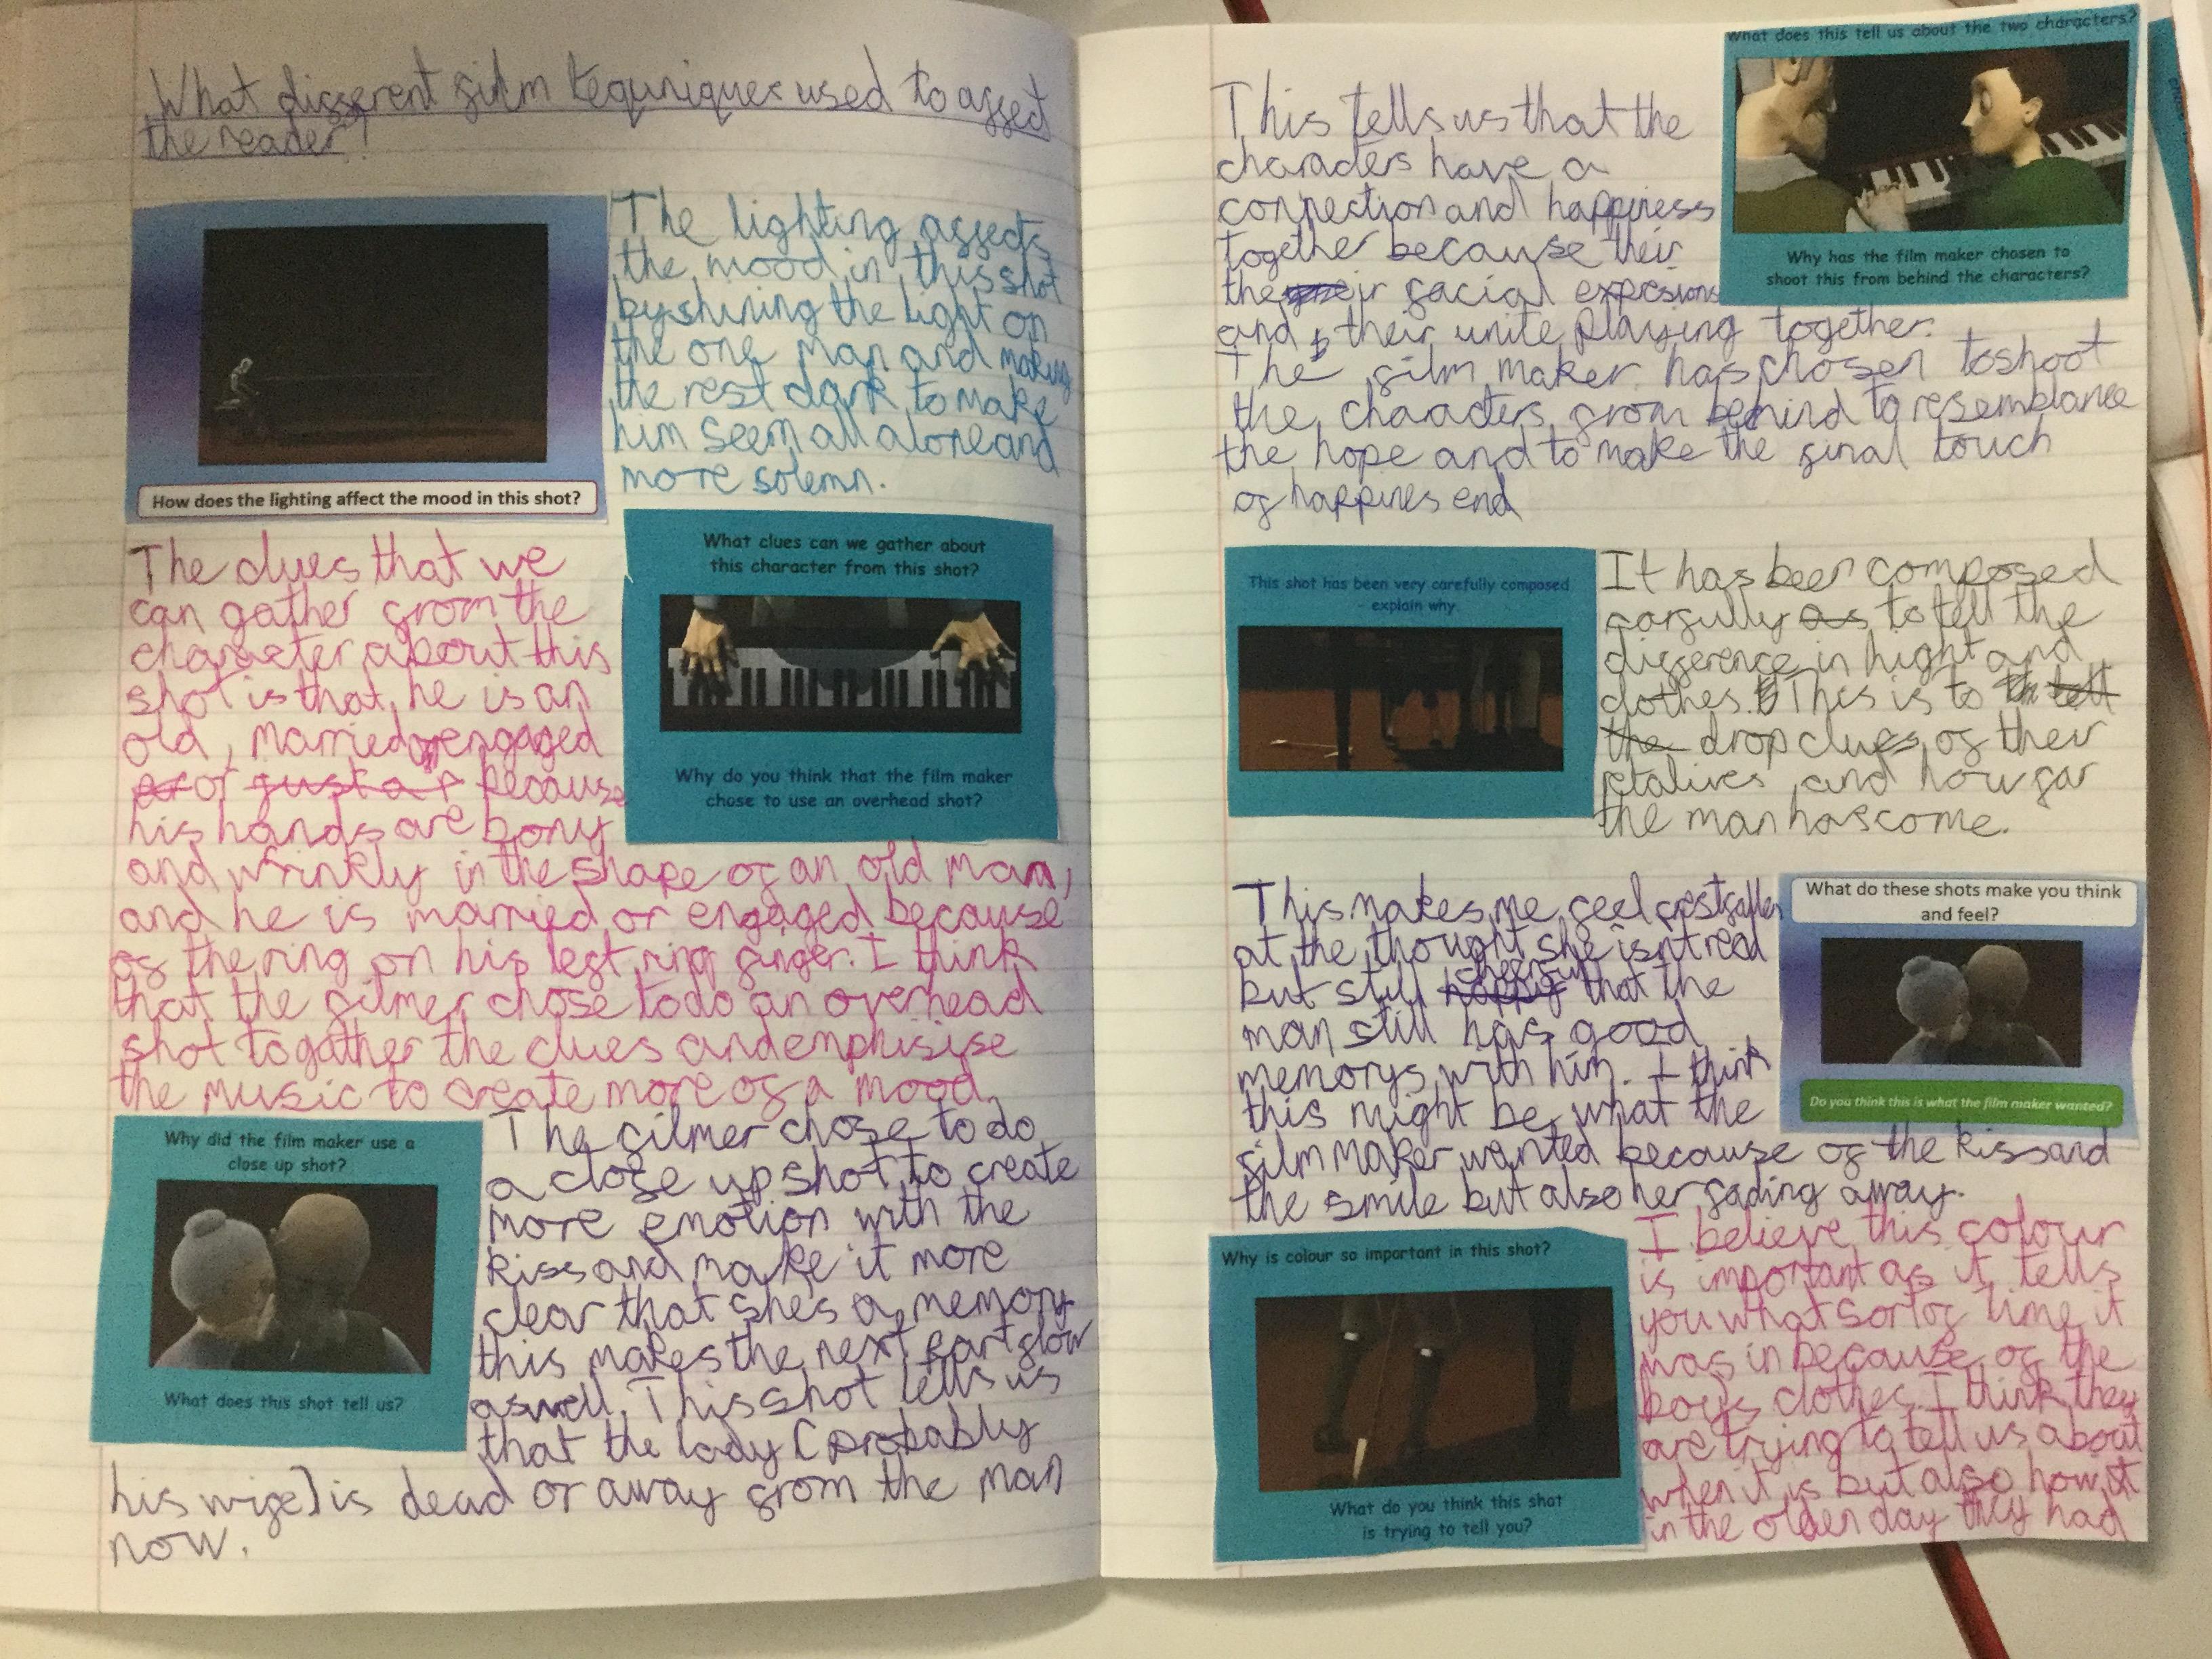 What different film tequniques used to affect
the reader?
The lighting affects
the mood in this shot
by shining the light on
the one man and making
the rest dark to make
him seem all alone and
more solemn.
How does the lighting affect the mood in this shot?
The clues that we
can gather from the
character about this
shot is that he is an
old, married or engaged
or just a because
his hands are bony
and wrinkly in the shape of an old man,
and he is married or engaged because
of the ring on his left ring finger. I think
that the filmer chose to do an overhead
shot to gather the clues and emphisise
the music to create more of a mood.
What clues can we gather about
this character from this shot?
Why do you think that the film maker
chose to use an overhead shot?
Why did the film maker use a
close up shot?
What does this shot tell us?
The filmer chose to do
a close up shot to create
more emotion with the
kiss and make it more
clear that she's a memory
this makes the next part slow
aswell. This shot tells us
that the lady (probably
his wife) is dead or away from the man
now.
What does this tell us about the two characters?
Why has the film maker chosen to
shoot this from behind the characters?
This tells us that the
characters have a
connection and happiness
together because their
their facial expresions
and their unite playing together.
The film maker has chosen to shoot
the characters from behind to resemblance
the hope and to make the final touch
of happines end
This shot has been very carefully composed
- explain why.
It has been composed
carfully as to tell the
difference in hight and
clothes. This is to tell
the drop clues of their
relatives and how far
the man has come.
This makes me feel crestfallen
at the thought she isn't real
but still happy cheerful that the
man still has good
memorys with him. I think
this might be what the
film maker wanted because of the kiss and
the smile but also her fading away.
What do these shots make you think
and feel?
Do you think this is what the film maker wanted?
Why is colour so important in this shot?
What do you think this shot
is trying to tell you?
I believe this colour
is important as it tells
you what sort of time it
was in because of the
boys clothes. I think they
are trying to tell us about
when it is but also how it
in the olden day they had